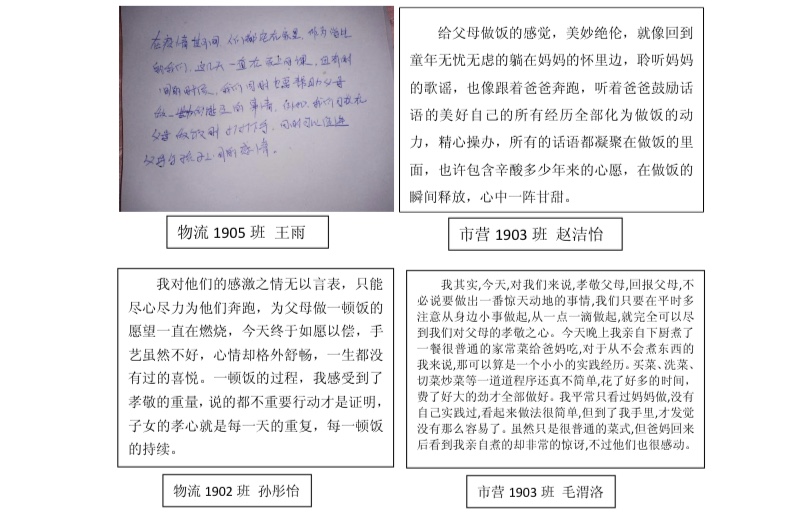 给父母做饭的感觉，美妙绝伦，就像回到
童年无忧无虑的躺在妈妈的怀里边，聆听妈妈
的歌谣，也像跟着爸爸奔跑，听着爸爸鼓励话
语的美好自己的所有经历全部化为做饭的动
力，精心操办，所有的话语都凝聚在做饭的里
面，也许包含辛酸多少年来的心愿，在做饭的
瞬间释放，心中一阵甘甜。
物流 1905 班 王雨
市营 1903 班 赵洁怡
我对他们的感激之情无以言表，只能
尽心尽力为他们奔跑，为父母做一顿饭的
愿望一直在燃烧，今天终于如愿以偿，手
艺虽然不好，心情却格外舒畅，一生都没
有过的喜悦。一顿饭的过程，我感受到了
孝敬的重量，说的都不重要行动才是证明，
子女的孝心就是每一天的重复，每一顿饭
的持续。
我其实,今天,对我们来说,孝敬父母,回报父母,不
必说要做出一番惊天动地的事情,我们只要在平时多
注意从身边小事做起,从一点一滴做起,就完全可以尽
到我们对父母的孝敬之心。今天晚上我亲自下厨煮了
一餐很普通的家常菜给爸妈吃,对于从不会煮东西的
我来说,那可以算是一个小小的实践经历。买菜、洗菜、
切菜炒菜等一道道程序还真不简单,花了好多的时间，
费了好大的劲才全部做好。我平常只看过妈妈做,没有
自己实践过,看起来做法很简单,但到了我手里,才发觉
没有那么容易了。虽然只是很普通的菜式,但爸妈回来
后看到我亲自煮的却非常的惊讶,不过他们也很感动。
物流 1902 班 孙彤怡
市营 1903 班 毛渭洛